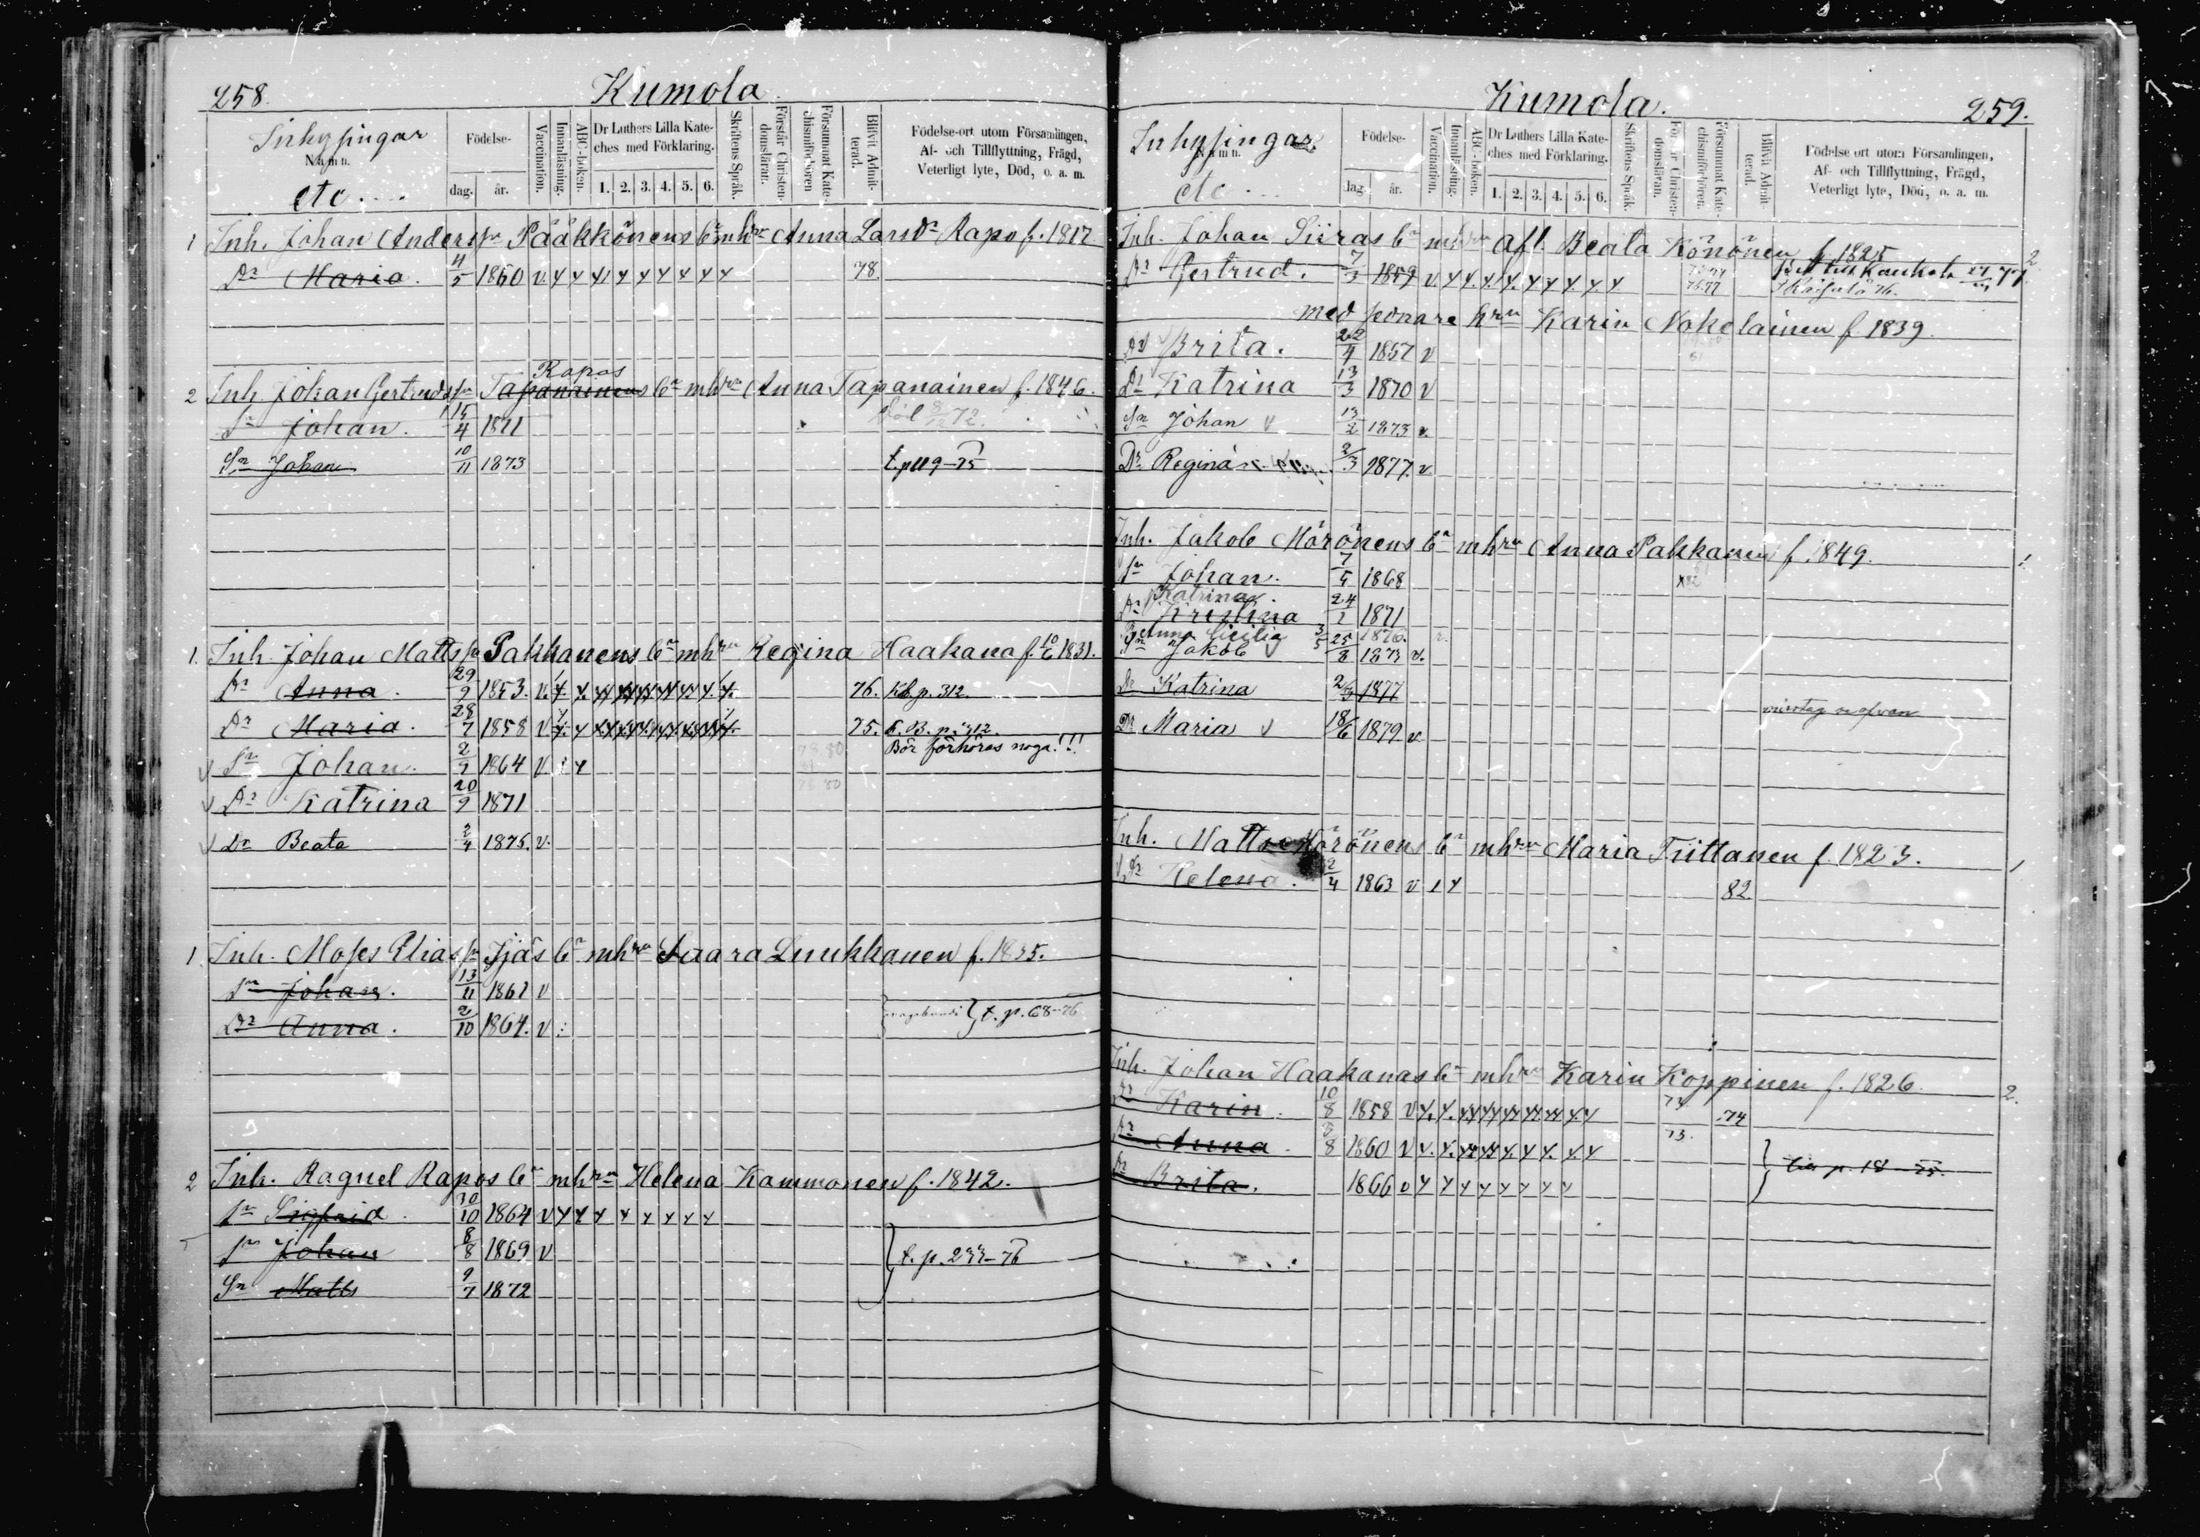 258.
Kumola
Inhysingar
Namn.
etc
Födelse-
dag. år.
Vaccination.
Innanläsning.
ABC-boken.
Dr Luthers Lilla Kate-
ches med Förklaring.
1. 2. 3. 4. 5. 6.
Skriftens Språk.
Förstår Christen-
domsläran.
Försummat Kate-
chismiförhören
Blifvit Admit-
terad.
Födelse-ort utom Församlingen,
Af- och Tillflyttning, Frägd,
Veterligt lyte, Död, o. a. m.
1 Inh. Johan Anderssn Pääkkönens bn m hru Anna Larsdr Rapo f. 1817
Dr Maria. 4/5 1860 v. 78.
Rapos
2 Inh. Johan Gertruds sn Tapanainens bn m hru Anna Tapanainen f. 1846.
Sn Johan. 15/4 1871 Död 8/12 72.
Sn Johan 10/11 1873 t. p 119-75
1. Inh. Johan Matts sn Pakkanens bn m hru Regina Haakana f. 10/6 1831.
Dr Anna. 29/9 1853. v. 76. Kb p. 312.
Dr Maria. 28/7 1858 v 75. K. B. p. 312.
Bör förhöras noga!!!
Sn Johan. 2/9 1864 v 78 80
Dr Katrina 20/9 1871 78 80
Dr Beata 2/4 1875. v.
1. Inh. Moses Elias sn Ijäs bn m hru Saara Luukkanen f. 1835.
Sn Johan. 13/11 1861 v
Dr Anna. 2/10 1864. v t. p. 68-76
2 Inh. Raguel Rapos bn m hru Helena Kammonen f. 1842.
Sn Sigfrid. 30/10 1864 v
Sn Johan 8/8 1869 v t. p. 233-76
Sn Matts 9/7 1872
Kumola.
259.
Inhysingar
Namn.
etc
Födelse-
dag. år.
Vaccination.
Innanläsning.
ABC-boken.
Dr Luthers Lilla Kate-
ches med Förklaring.
1. 2. 3. 4. 5. 6.
Skriftens Språk.
Förstår Christen-
domsläran.
Försummat Kate-
chismiförhören.
Blifvit Admit-
terad.
Födelse ort utom Församlingen,
Af- och Tillflyttning, Frägd,
Veterligt lyte, Död, o. a. m.
Inh. Johan Siiras bn m hru Afl. Beata Könönen f. 1825 2
Dr Gertrud. 7/3 1859 v. 76.77 till Kaukola 77
med senare hru Karin Nokelainen f. 1839.
Dr Brita. 22/4 1857 v
Dr Katrina 13/3 1870 v
Sn Johan v 13/2 1873 v.
Dr Regina 2/3 1877. v.
Inh. Jakob Mörönens bn m hru Anna Pakkanen f. 1849. 1
Sn Johan. 7/5 1868
Katrina
Dr Kristina 24/1 1871
Dr Anna Cicilia 3/5 1876.
Sn Jakob 25/8 1873 v.
Dr Katrina 2/3 1877
Dr Maria v 18/6 1879 v
Inh. Matts Mörönens bn m hru Maria Tiittanen f. 1823. 1
Dr Helena. 2/4 1863 v 82
Inh. Johan Haakanas bn m hru Karin Koppinen f. 1826. 2.
Dr Karin. 10/8 1858 v 73 74
Dr Anna 8/8 1860 v 73.
Dr Brita. 1866 v p. 18-75.